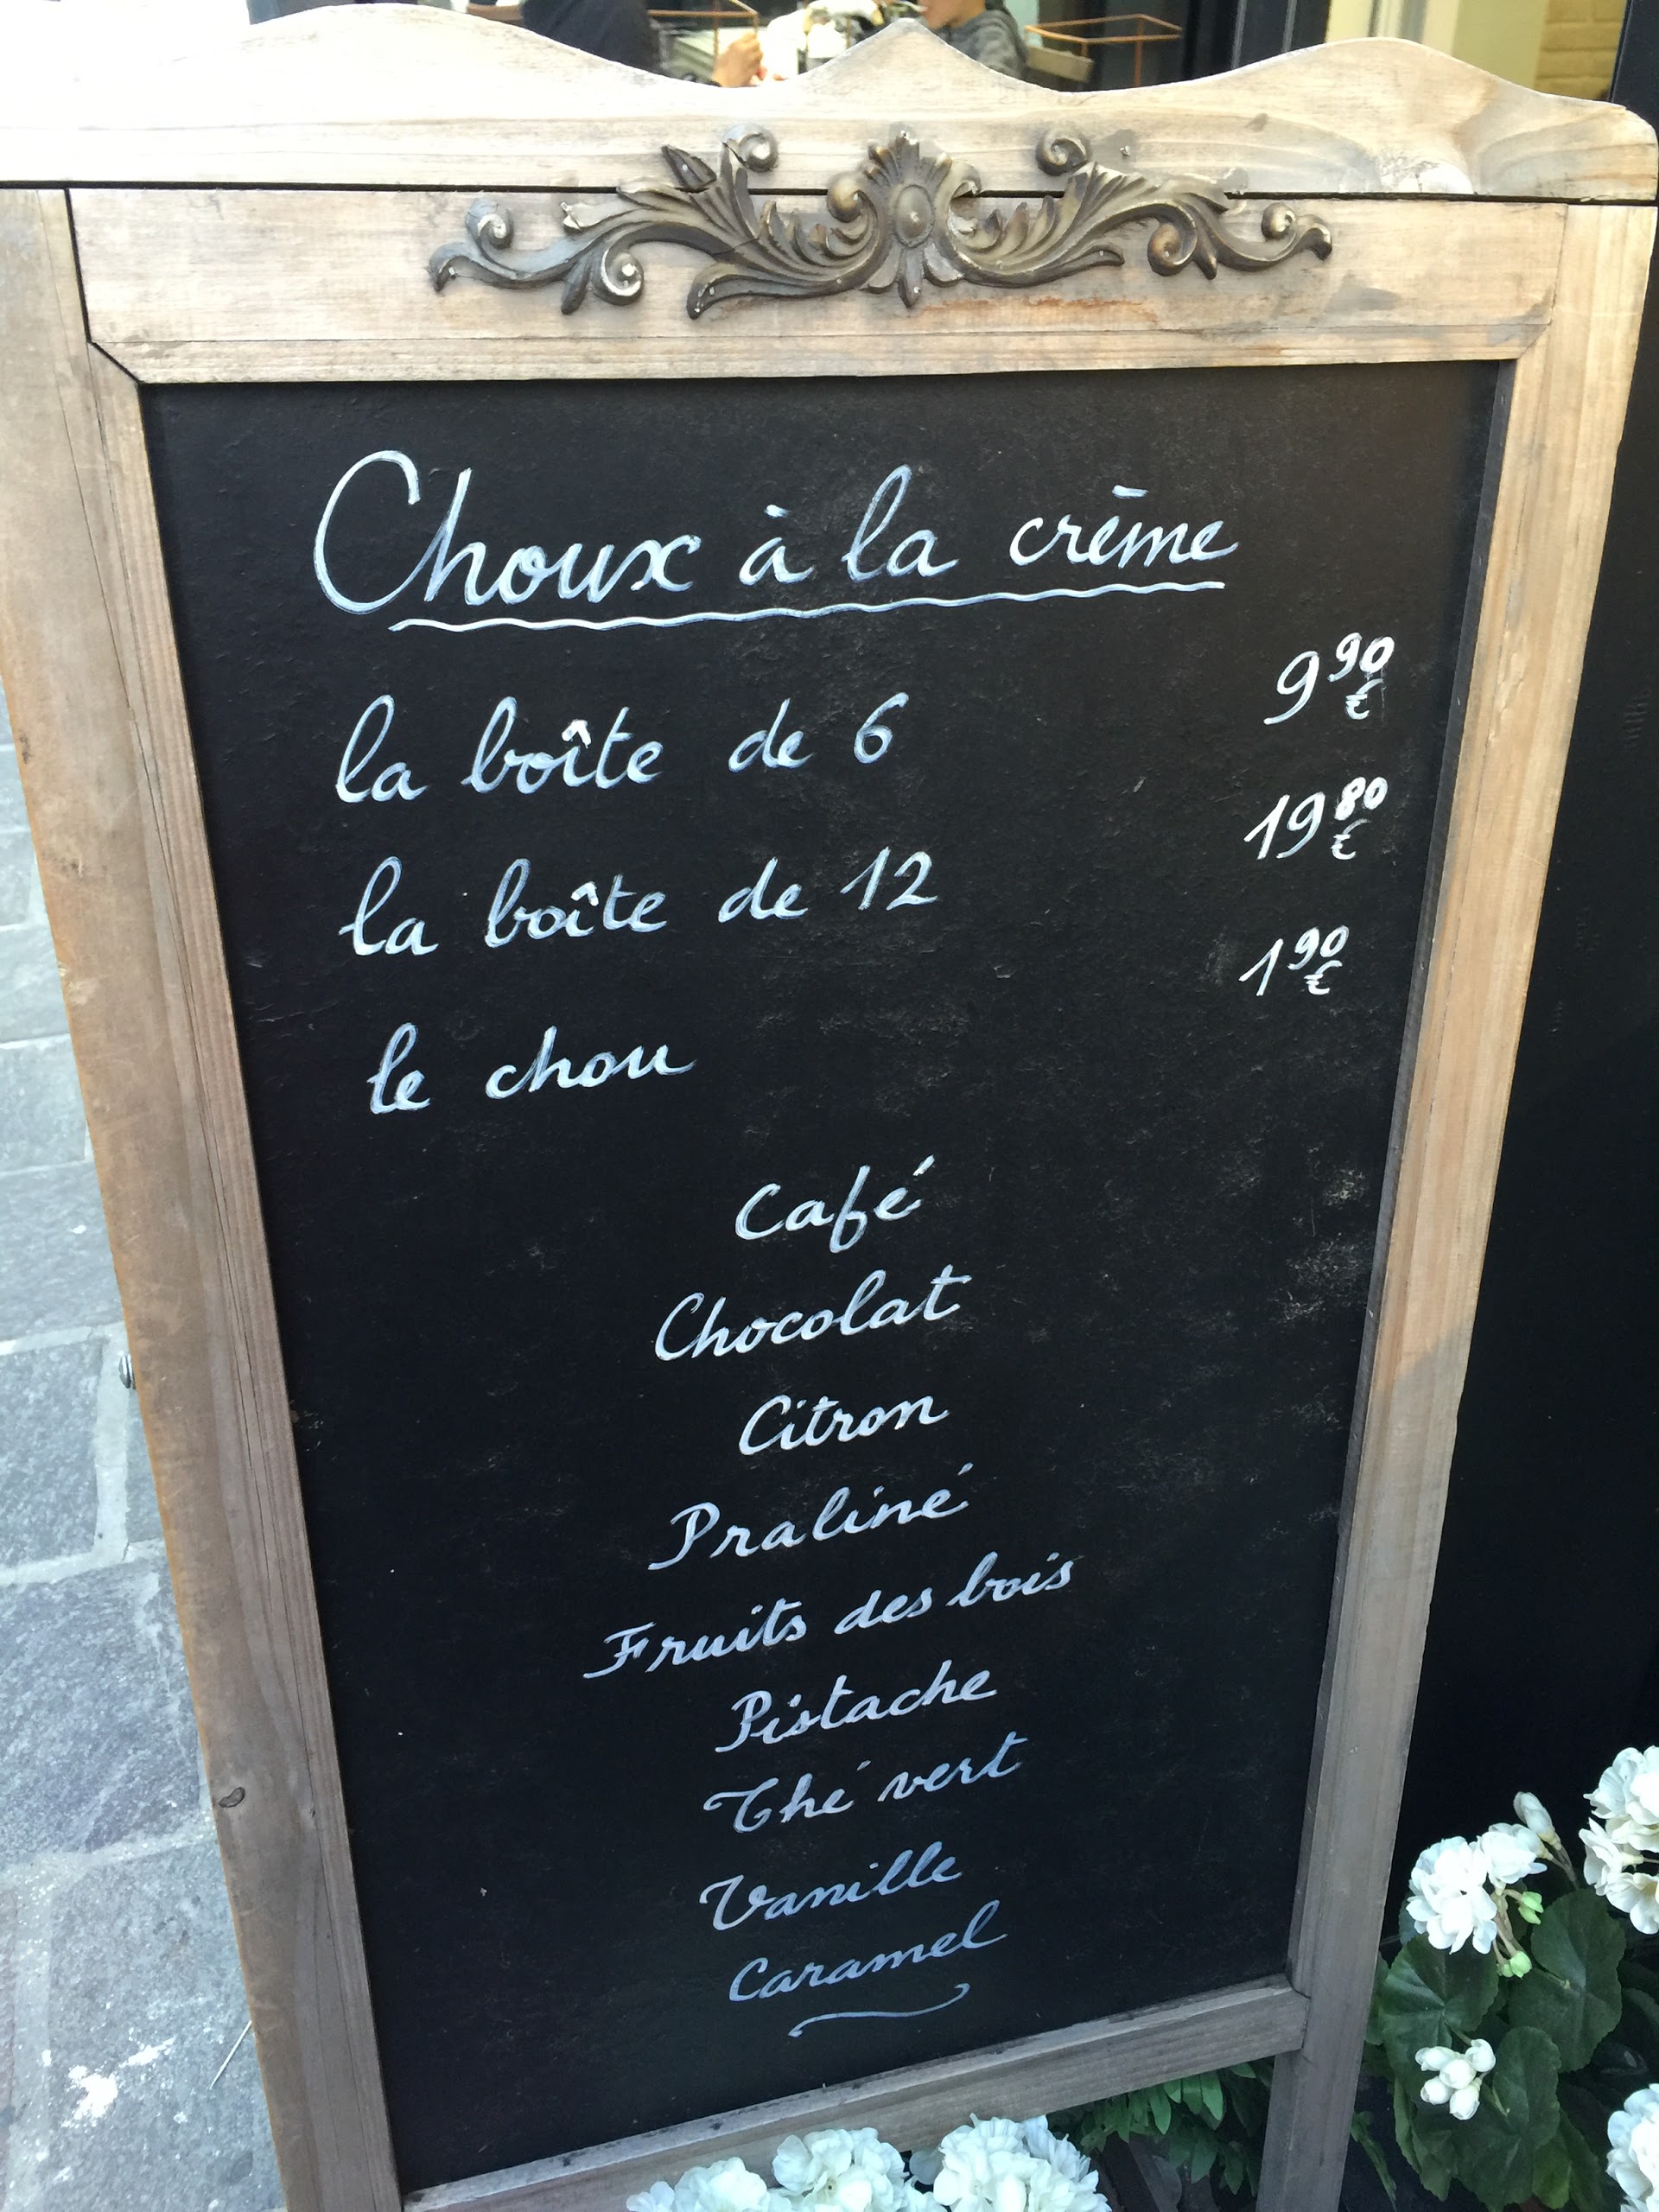 Choux à la crème
la boîte de 6 9,90 €
la boîte de 12 19,80 €
le chou 1,90 €
Café
Chocolat
Citron
Praliné
Fruits des bois
Pistache
Thé vert
Vanille
Caramel